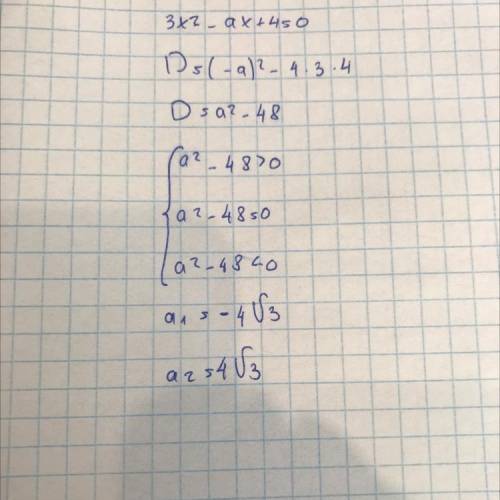 3x² - ax + 4 = 0
D = (-a)² - 4 · 3 · 4
D = a² - 48
a² - 48 > 0
a² - 48 = 0
a² - 48 < 0
a₁ = -4√3
a₂ = 4√3